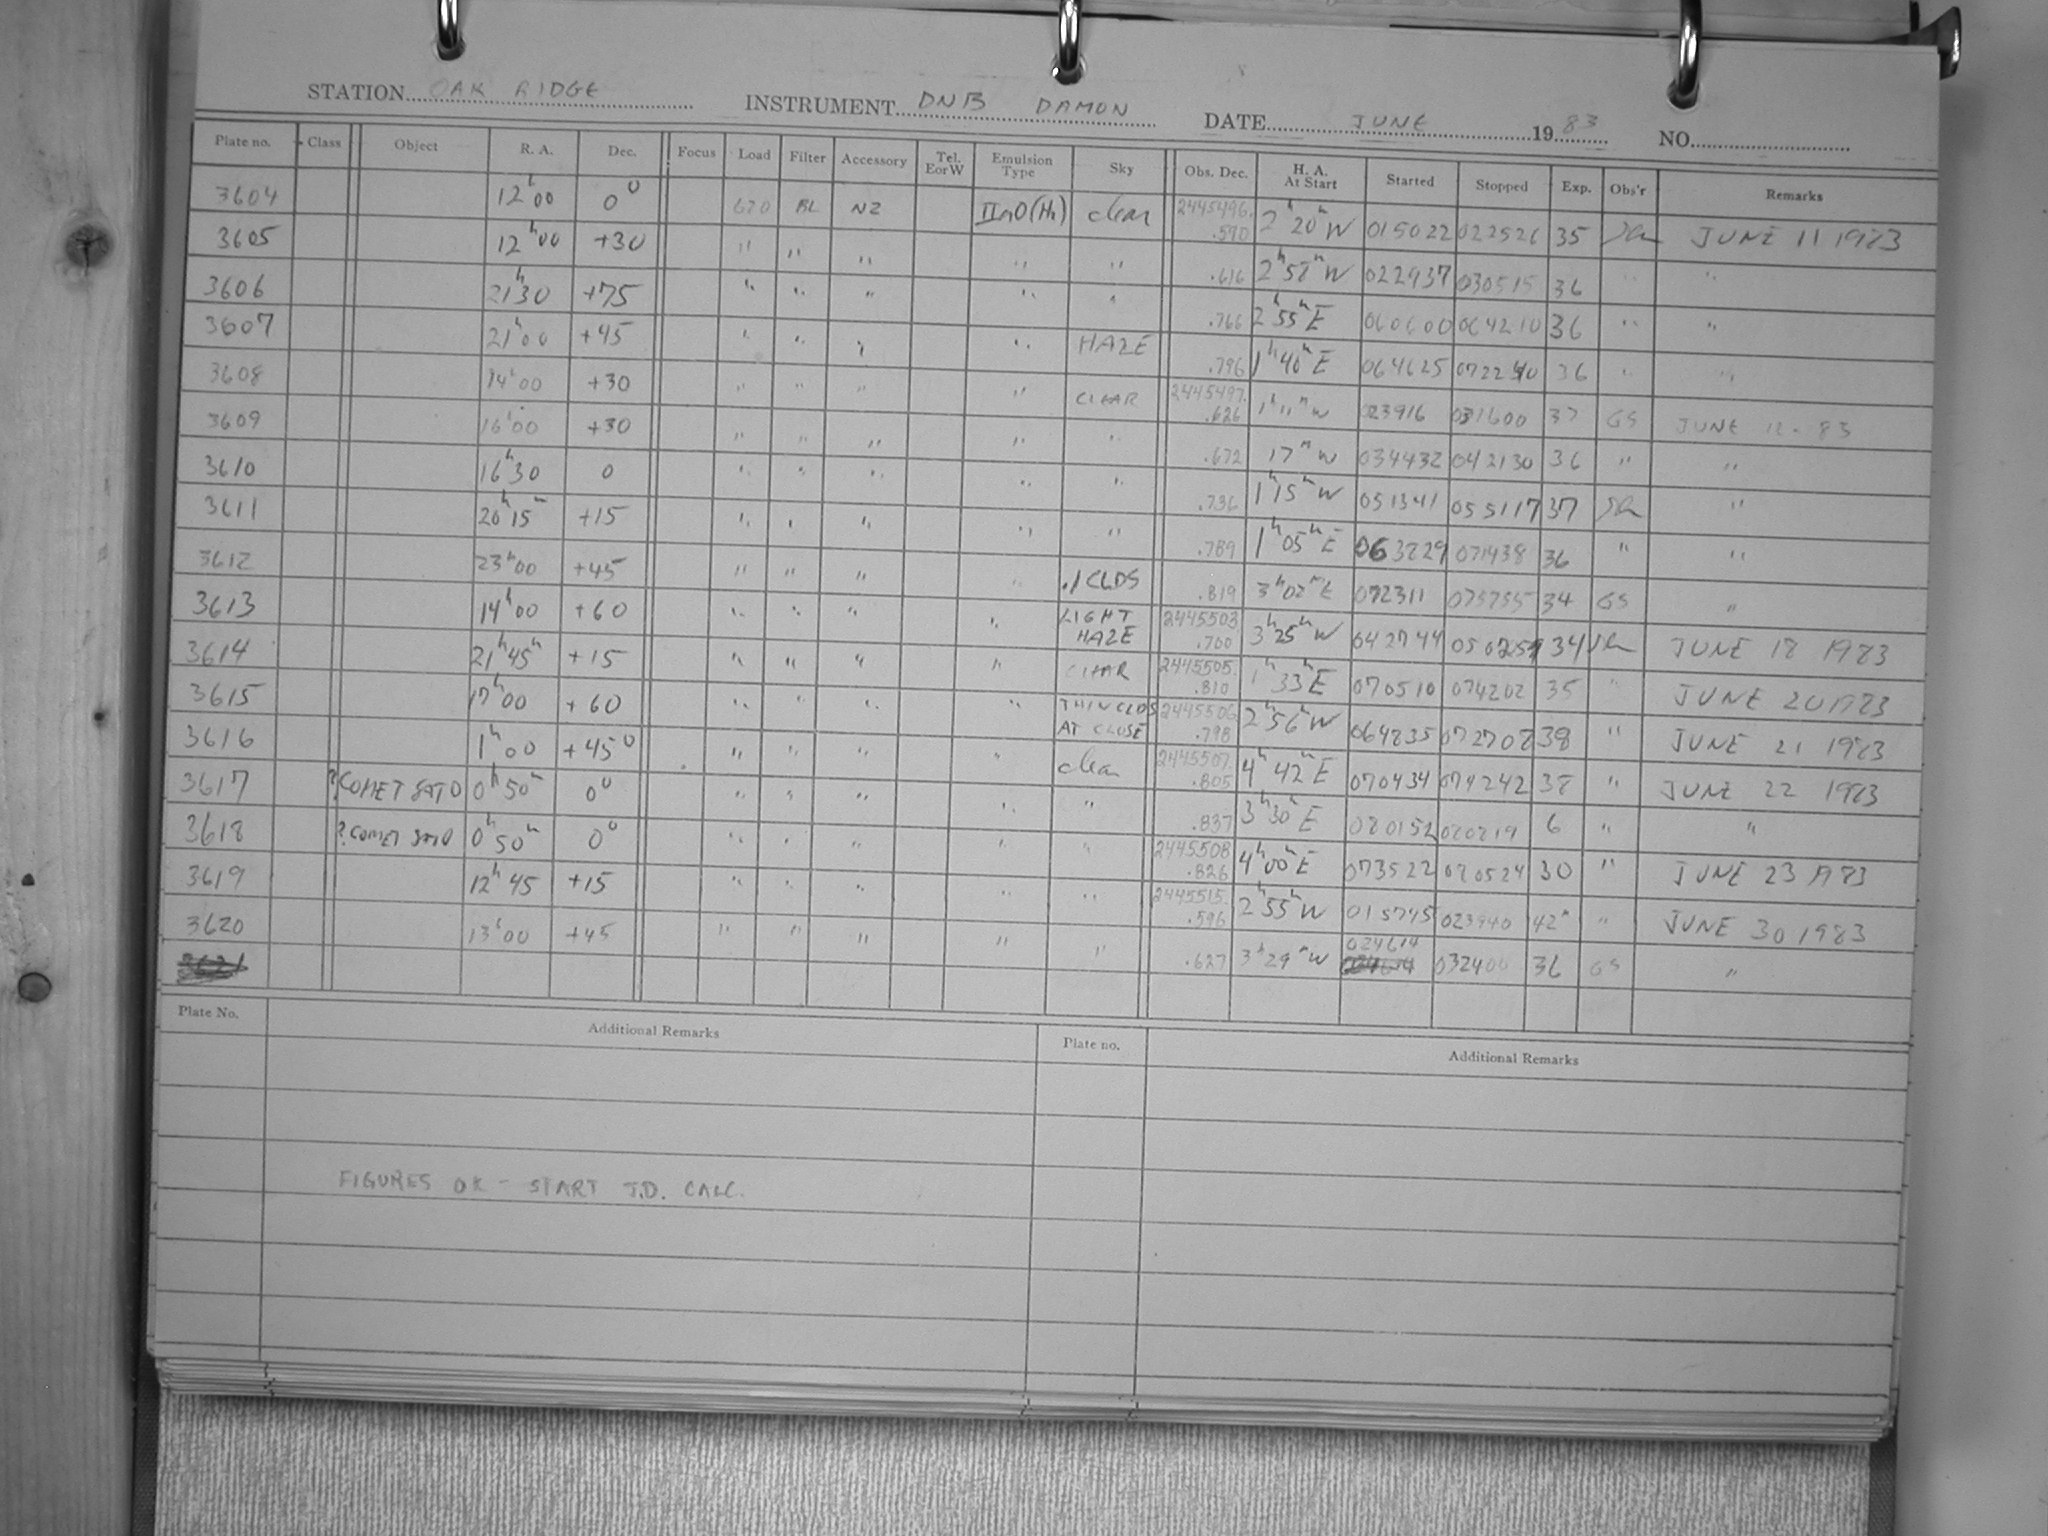 STATION OAK RIDGE INSTRUMENT DNB DAMON DATE JUNE 1983 NO.
Plate no. Class Object R. A. Dec. Focus Load Filter Accessory Tel. EorW Emulsion Type Sky Obs. Dec. H. A. At Start Started Stopped Exp. Obs'r Remarks
3604 12h00 0° 620 BL NZ IIaO(H2) clear 2445496. .570 2h20m W 015022 022526 35 JUNE 11 1983
3605 12h00 +30 " " " " " .616 2h58m W 022937 030515 36 " "
3606 21h30 +75 " " " " " .766 2h55m E 060600 064210 36 " "
3607 21h00 +45 " " " " HAZE .796 1h40m E 064625 072240 36 " "
3608 14h00 +30 " " " " CLEAR 2445497. .626 1h11m W 023916 031600 37 GS JUNE 12-83
3609 16h00 +30 " " " " " .672 17m W 034432 042130 36 " "
3610 16h30 0 " " " " " .736 1h15m W 051341 055117 37 "
3611 20h15m +15 " " " " " .789 1h05m E 063829 071438 36 " "
3612 23h00 +45 " " " " .1 CLDS .819 3h02m E 072311 075755 34 GS "
3613 14h00 +60 " " " " LIGHT HAZE 2445503. .700 3h25m W 042744 050259 34 JUNE 18 1983
3614 21h45m +15 " " " " CLEAR 2445505. .810 1h33m E 070510 074202 35 " JUNE 20 1983
3615 17h00 +60 " " " " THIN CLDS AT CLOSE 2445506. .798 2h56m W 064835 072708 38 " JUNE 21 1983
3616 1h00 +45° " " " " clear 2445507. .805 4h42m E 070434 074242 38 " JUNE 22 1983
3617 ?COMET SATO 0h50m 0° " " " " " .837 3h30m E 080152 080819 6 " "
3618 ?COMET SATO 0h50m 0° " " " " " 2445508 .826 4h00m E 073522 080524 30 " JUNE 23 1983
3619 12h45 +15 " " " " " 2445515. .596 2h55m W 015745 023940 42" " JUNE 30 1983
3620 13h00 +45 " " " " " .627 3h29m W 024614 032400 36 GS "
Plate No. Additional Remarks Plate no. Additional Remarks
FIGURES OK - START J.D. CALC.